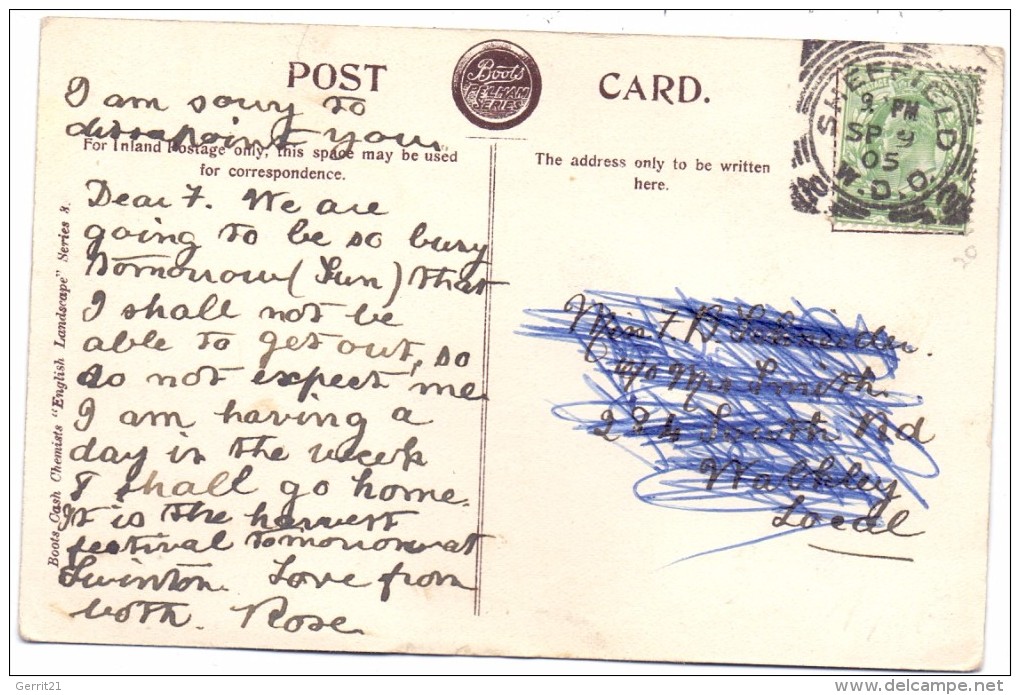 POST CARD.
Boots
PELHAM
SERIES
SHEFFIELD
9 PM
SP 9
05
W.D.O.
I am sorry to
dissapoint you.
For Inland Postage only, this space may be used
for correspondence.
The address only to be written
here.
Dear F. We are
going to be so busy
tomorrow (Sun) that
I shall not be
able to get out, so
do not expect me
I am having a
day in the week
I shall go home.
It is the harvest
festival tomorrow at
Swinton. Love from
both. Rose
Boots Cash Chemists "English Landscape" Series 8.
Miss F. B. Schneider.
c/o Mrs Smith
284 South Rd
Walkley
Local
20
Gerrit21
delcampe.net